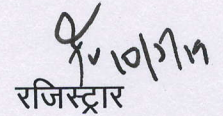 10/7/19
रजिस्ट्रार